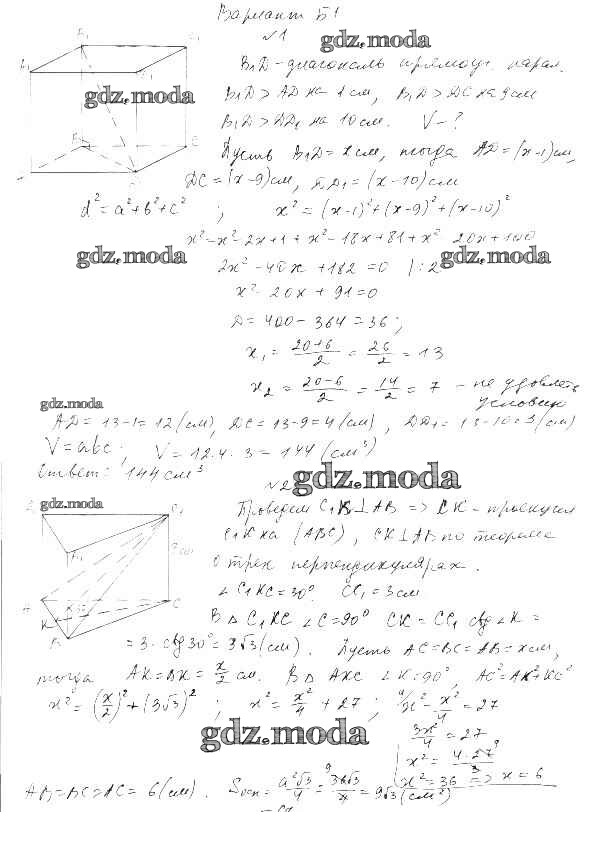 Вариант Б1
№1
gdz.moda
B₁D – диагональ прямоуг. парал.
gdz.moda
B₁D > AD на 1 см, B₁D > DC на 9 см
B₁D > DD₁ на 10 см. V – ?
Пусть B₁D = x см, тогда AD = (x-1) см,
DC = (x-9) см, DD₁ = (x-10) см
d² = a² + b² + c² ; x² = (x-1)² + (x-9)² + (x-10)²
x² = x² - 2x + 1 + x² - 18x + 81 + x² 20x + 100
gdz.moda gdz.moda
2x² - 40x + 182 = 0 | : 2
x² - 20x + 91 = 0
D = 400 - 364 = 36 ;
x₁ = (20+6)/2 = 26/2 = 13
x₂ = (20-6)/2 = 14/2 = 7 – не удовлет.
условию
gdz.moda
AD = 13-1 = 12 (см), DC = 13-9 = 4 (см), DD₁ = 13-10 = 3 (см)
V = abc ; V = 12·4·3 = 144 (см³)
Ответ: 144 см³
№2
gdz.moda
gdz.moda
Проведем C₁K ⊥ AB => CK – проекция
C₁K на (ABC), CK ⊥ AB по теореме
о трех перпендикулярах.
∠C₁KC = 30° CC₁ = 3 см
В △ C₁KC ∠C = 90° CK = CC₁ ctg∠K =
= 3·ctg30° = 3√3 (см). Пусть AC = BC = AB = x см,
тогда AK = BK = x/2 см. В △ AKC ∠K = 90°, AC² = AK² + KC²
x² = (x/2)² + (3√3)² ; x² = x²/4 + 27 ; x² - x²/4 = 27
gdz.moda
3x²/4 = 27
x² = 4·27/3
x² = 36 => x = 6
AB = BC = AC = 6 (см). Sосн = a²√3/4 = 36√3/4 = 9√3 (см²)